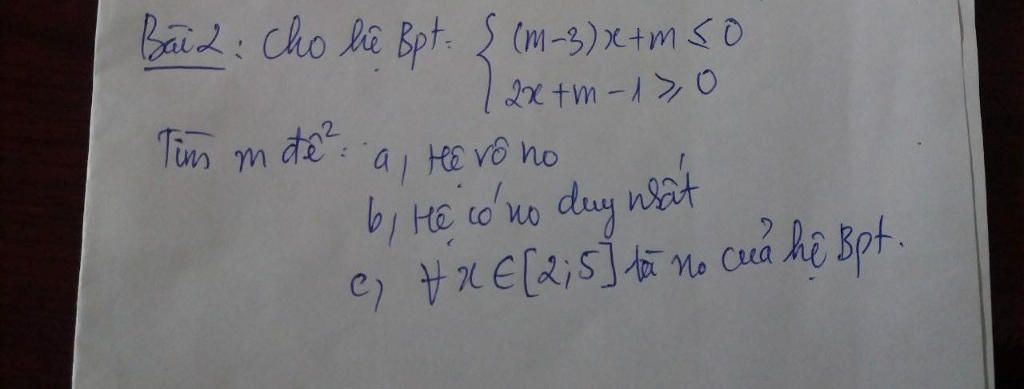 Bài 2: Cho hệ Bpt: { (m-3)x+m ≤ 0
2x+m-1 ≥ 0
Tìm m để: a, Hệ vô no
b, Hệ có no duy nhất
c, ∀x∈[2;5] là no của hệ Bpt.